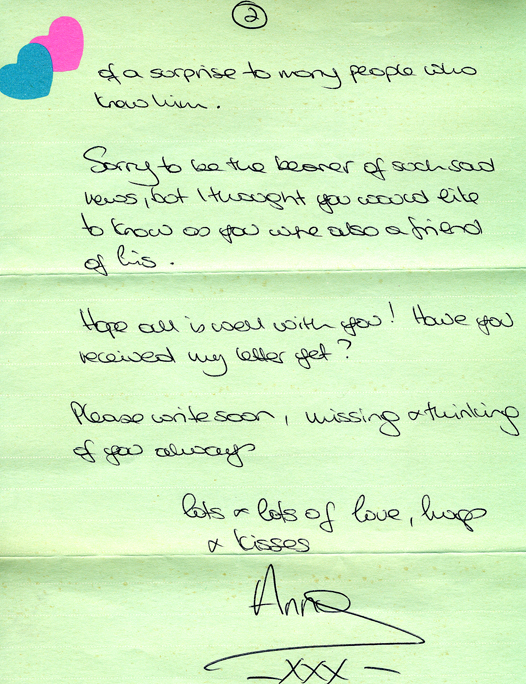 2
of a surprise to many people who
know him.
Sorry to be the bearer of such sad
news, but I thought you would like
to know as you were also a friend
of his.
Hope all is well with you! Have you
received my letter yet?
Please write soon, missing & thinking
of you always
lots & lots of love, hugs
& kisses
Anna
—XXX—